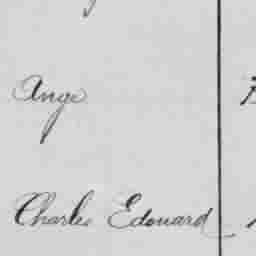 Ange
Charles Edouard